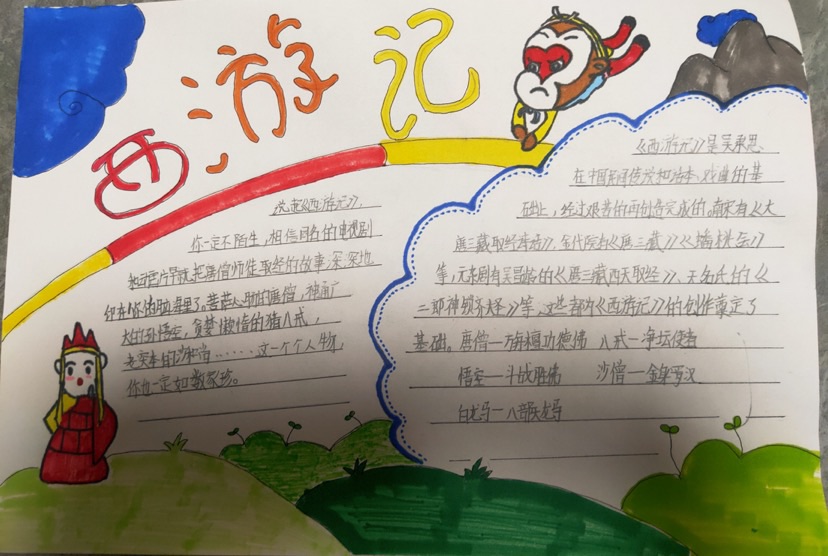 西游记
说起《西游记》，
你一定不陌生，相信同名的电视剧
和动画片早就把唐僧师徒取经的故事深深地
印在你的脑海里了。菩萨心肠的唐僧，神通广
大的孙悟空，贪婪懒惰的猪八戒，
老实本分的沙和尚……这一个个人物，
你也一定如数家珍。
《西游记》是吴承恩
在中国民间传说和话本、戏曲的基
础上，经过艰苦的再创造完成的。南宋有《大
唐三藏取经诗话》，金代院本有《唐三藏》《蟠桃会》
等，元杂剧有吴昌龄的《唐三藏西天取经》、无名氏的《
二郎神锁齐天大圣》等，这些都为《西游记》的创作奠定了
基础。唐僧—旃檀功德佛 八戒—净坛使者
悟空—斗战胜佛 沙僧—金身罗汉
白龙马—八部天龙马